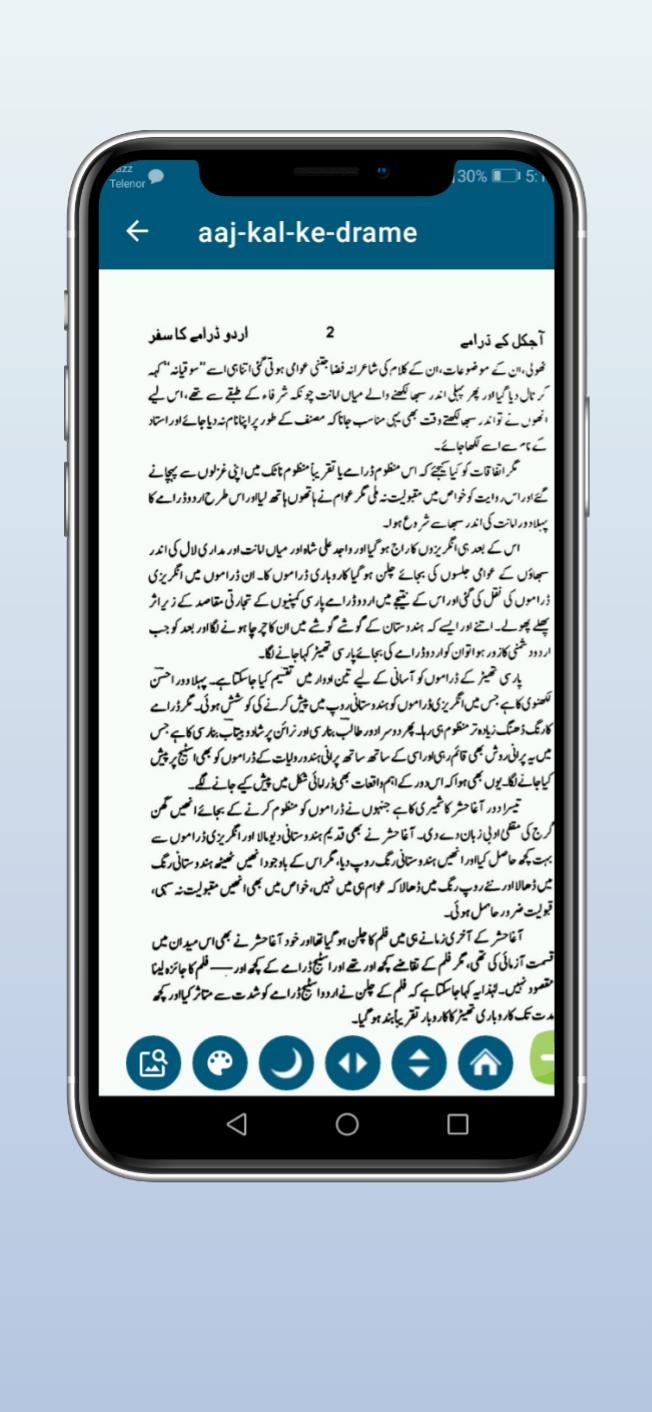 Jazz
Telenor
30%
5:1
aaj-kal-ke-drame
آجکل کے ڈرامے 2 اردو ڈرامے کا سفر
ٹھولی، ان کے موضوعات، ان کے کلام کی شاعرانہ فضا جتنی عوامی ہوتی گئی اتنا ہی اسے "سوقیانہ" کہہ
کر ٹال دیا گیا اور پھر پہلی اندر سبھا لکھنے والے میاں امانت چونکہ شرفاء کے طبقے سے تھے، اس لیے
انھوں نے تو اندر سبھا لکھتے وقت بھی یہی مناسب جانا کہ مصنف کے طور پر اپنا نام نہ دیا جائے اور استاد
کے نام سے اسے لکھا جائے۔
مگر اتفاقات کو کیا کیجئے کہ اس منظوم ڈرامے یا تقریباً منظوم ناٹک میں اپنی غزلوں سے پہچانے
گئے اور اس روایت کو خواص میں مقبولیت نہ ملی مگر عوام نے ہاتھوں ہاتھ لیا اور اس طرح اردو ڈرامے کا
پہلا دور امانت کی اندر سبھا سے شروع ہوا۔
اس کے بعد ہی انگریزوں کا راج ہو گیا اور واجد علی شاہ اور میاں امانت اور مداری لال کی اندر
سبھاؤں کے عوامی جلسوں کی بجائے چلن ہو گیا کاروباری ڈراموں کا۔ ان ڈراموں میں انگریزی
ڈراموں کی نقل کی گئی اور اس کے نتیجے میں اردو ڈرامے پارسی کمپنیوں کے تجارتی مقاصد کے زیر اثر
پھلے پھولے۔ اتنے اور ایسے کہ ہندوستان کے گوشے گوشے میں ان کا چرچا ہونے لگا اور بعد کو جب
اردو دشمنی کا زور ہوا تو ان کو اردو ڈرامے کی بجائے پارسی تھیٹر کہا جانے لگا۔
پارسی تھیٹر کے ڈراموں کو آسانی کے لیے تین ادوار میں تقسیم کیا جاسکتا ہے۔ پہلا دور احسن
لکھنوی کا ہے جس میں انگریزی ڈراموں کو ہندوستانی روپ میں پیش کرنے کی کوشش ہوئی۔ مگر ڈرامے
کا رنگ ڈھنگ زیادہ تر منظوم ہی رہا۔ پھر دوسرا دور طالب بنارسی اور نرائن پرشاد و بیتاب بنارسی کا ہے جس
میں یہ پرانی روش بھی قائم رہی اور اسی کے ساتھ ساتھ پرانی ہندو روایات کے ڈراموں کو بھی اسٹیج پر پیش
کیا جانے لگا۔ یوں بھی ہوا کہ اس دور کے اہم واقعات بھی ڈرامائی شکل میں پیش کیے جانے لگے۔
تیسرا دور آغا حشر کاشمیری کا ہے جنہوں نے ڈراموں کو منظوم کرنے کے بجائے انھیں گھن
گرج کی مقفیٰ ادبی زبان دے دی۔ آغا حشر نے بھی قدیم ہندوستانی دیومالا اور انگریزی ڈراموں سے
بہت کچھ حاصل کیا اور انھیں ہندوستانی رنگ روپ دیا، مگر اس کے باوجود انھیں ٹھیٹھ ہندوستانی رنگ
میں ڈھالا اور نئے روپ رنگ میں ڈھالا کہ عوام ہی میں نہیں، خواص میں بھی انھیں مقبولیت نہ سہی،
قبولیت ضرور حاصل ہوئی۔
آغا حشر کے آخری زمانے ہی میں فلم کا چلن ہو گیا تھا اور خود آغا حشر نے بھی اس میدان میں
قسمت آزمائی کی تھی، مگر فلم کے تقاضے کچھ اور تھے اور اسٹیج ڈرامے کے کچھ اور —— فلم کا جائزہ لینا
مقصود نہیں۔ لہٰذا یہ کہا جاسکتا ہے کہ فلم کے چلن نے اردو اسٹیج ڈرامے کو شدت سے متاثر کیا اور کچھ
مدت تک کاروباری تھیٹر کا کاروبار تقریباً بند ہو گیا۔